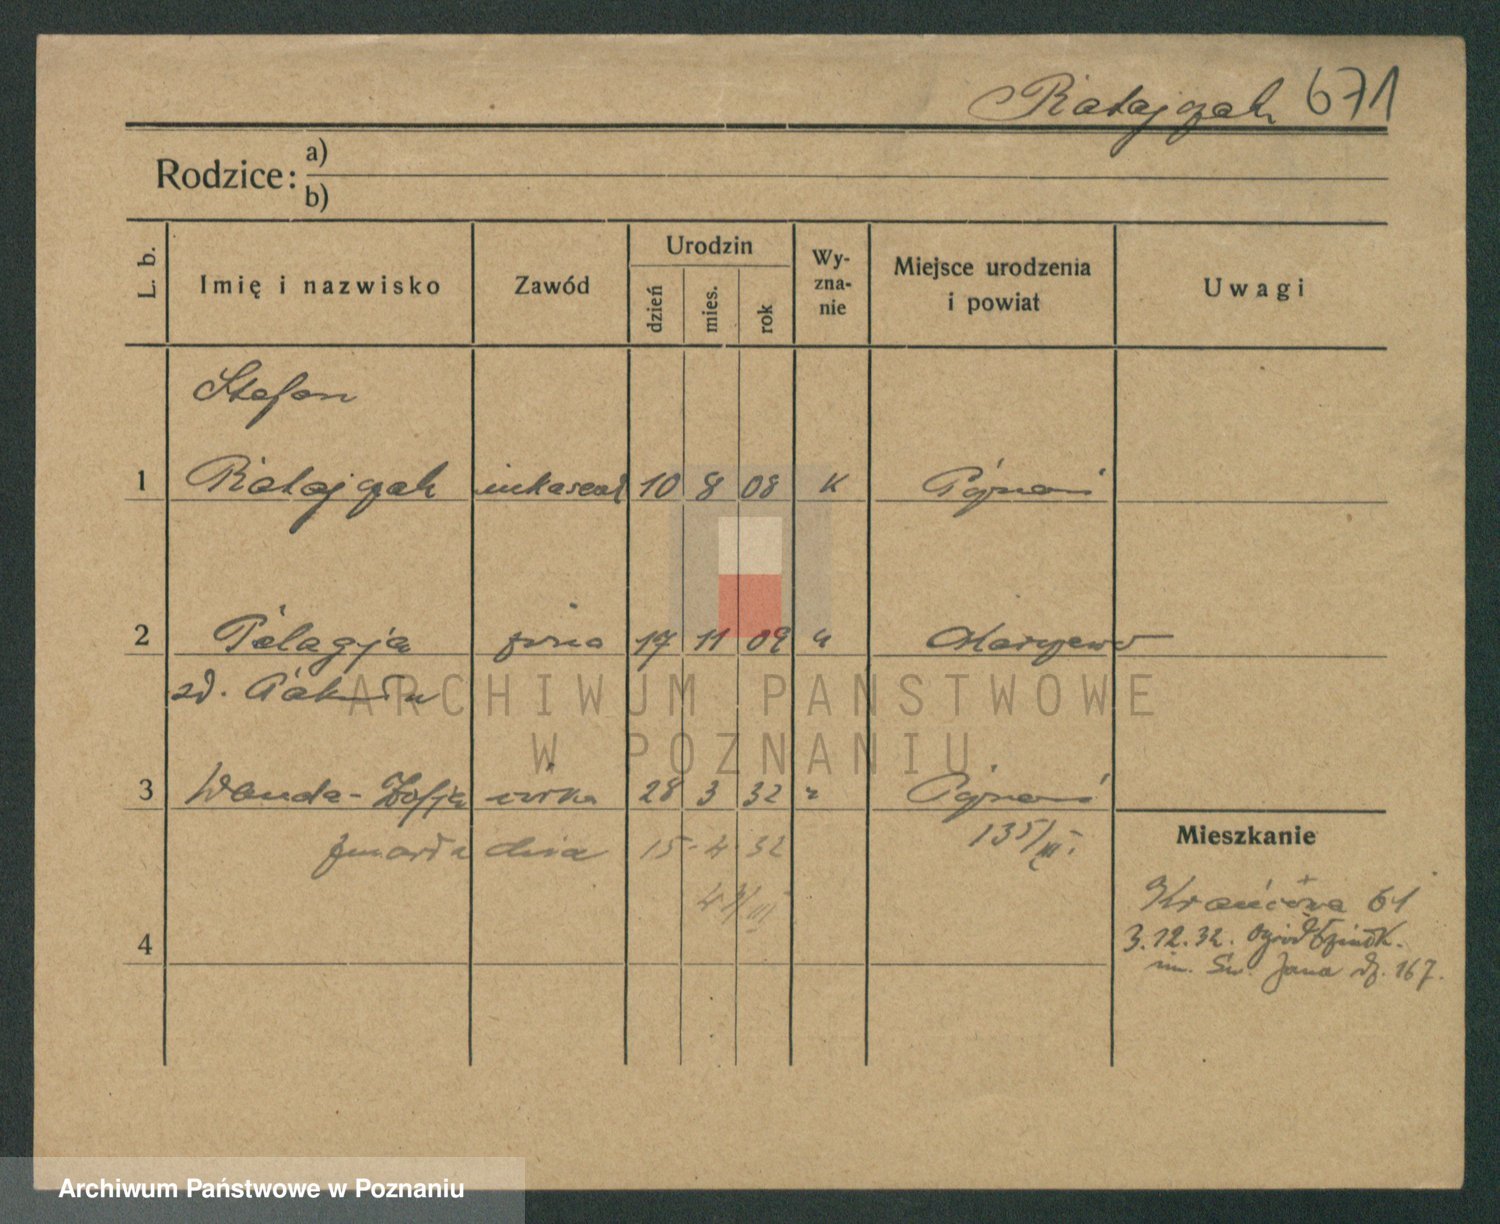 Ratajczak 671
Rodzice: a)
b)
L. b.
Imię i nazwisko
Zawód
Urodzin
dzień
mies.
rok
Wy-
zna-
nie
Miejsce urodzenia
i powiat
Uwagi
Stefan
1 Ratajczak inkasent 10 8 08 K Poznań
2 Pelagja żona 17 11 09 "
zd.
3 Wanda-Zofja córka 28 3 32 " Poznań
zmarła dnia 15-4-32
135/III.
4
Mieszkanie
Krańcowa 61
3.12.32.
im. Św. Jana dz. 167.
ARCHIWUM PAŃSTWOWE
W POZNANIU
Archiwum Państwowe w Poznaniu